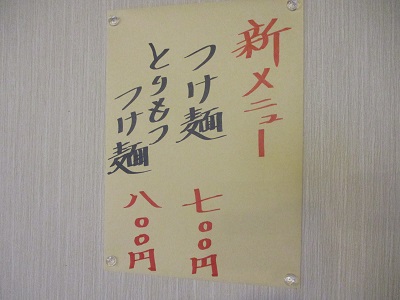 新メニュー
つけ麺 七〇〇円
とりもつ
つけ麺 八〇〇円